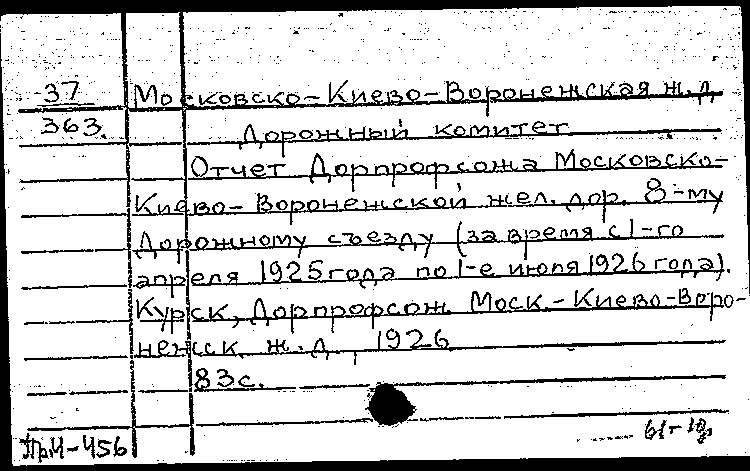 37 Московско-Киево-Воронежская ж.д.
363. Дорожный комитет
Отчет Дорпрофсожа Московско-
Киево-Воронежской жел. дор. 8-му
Дорожному съезду (за время с 1-го
апреля 1925 года по 1-е июля 1926 года).
Курск, Дорпрофсож Моск.-Киево-Воро-
нежск. ж.д., 1926
83с.